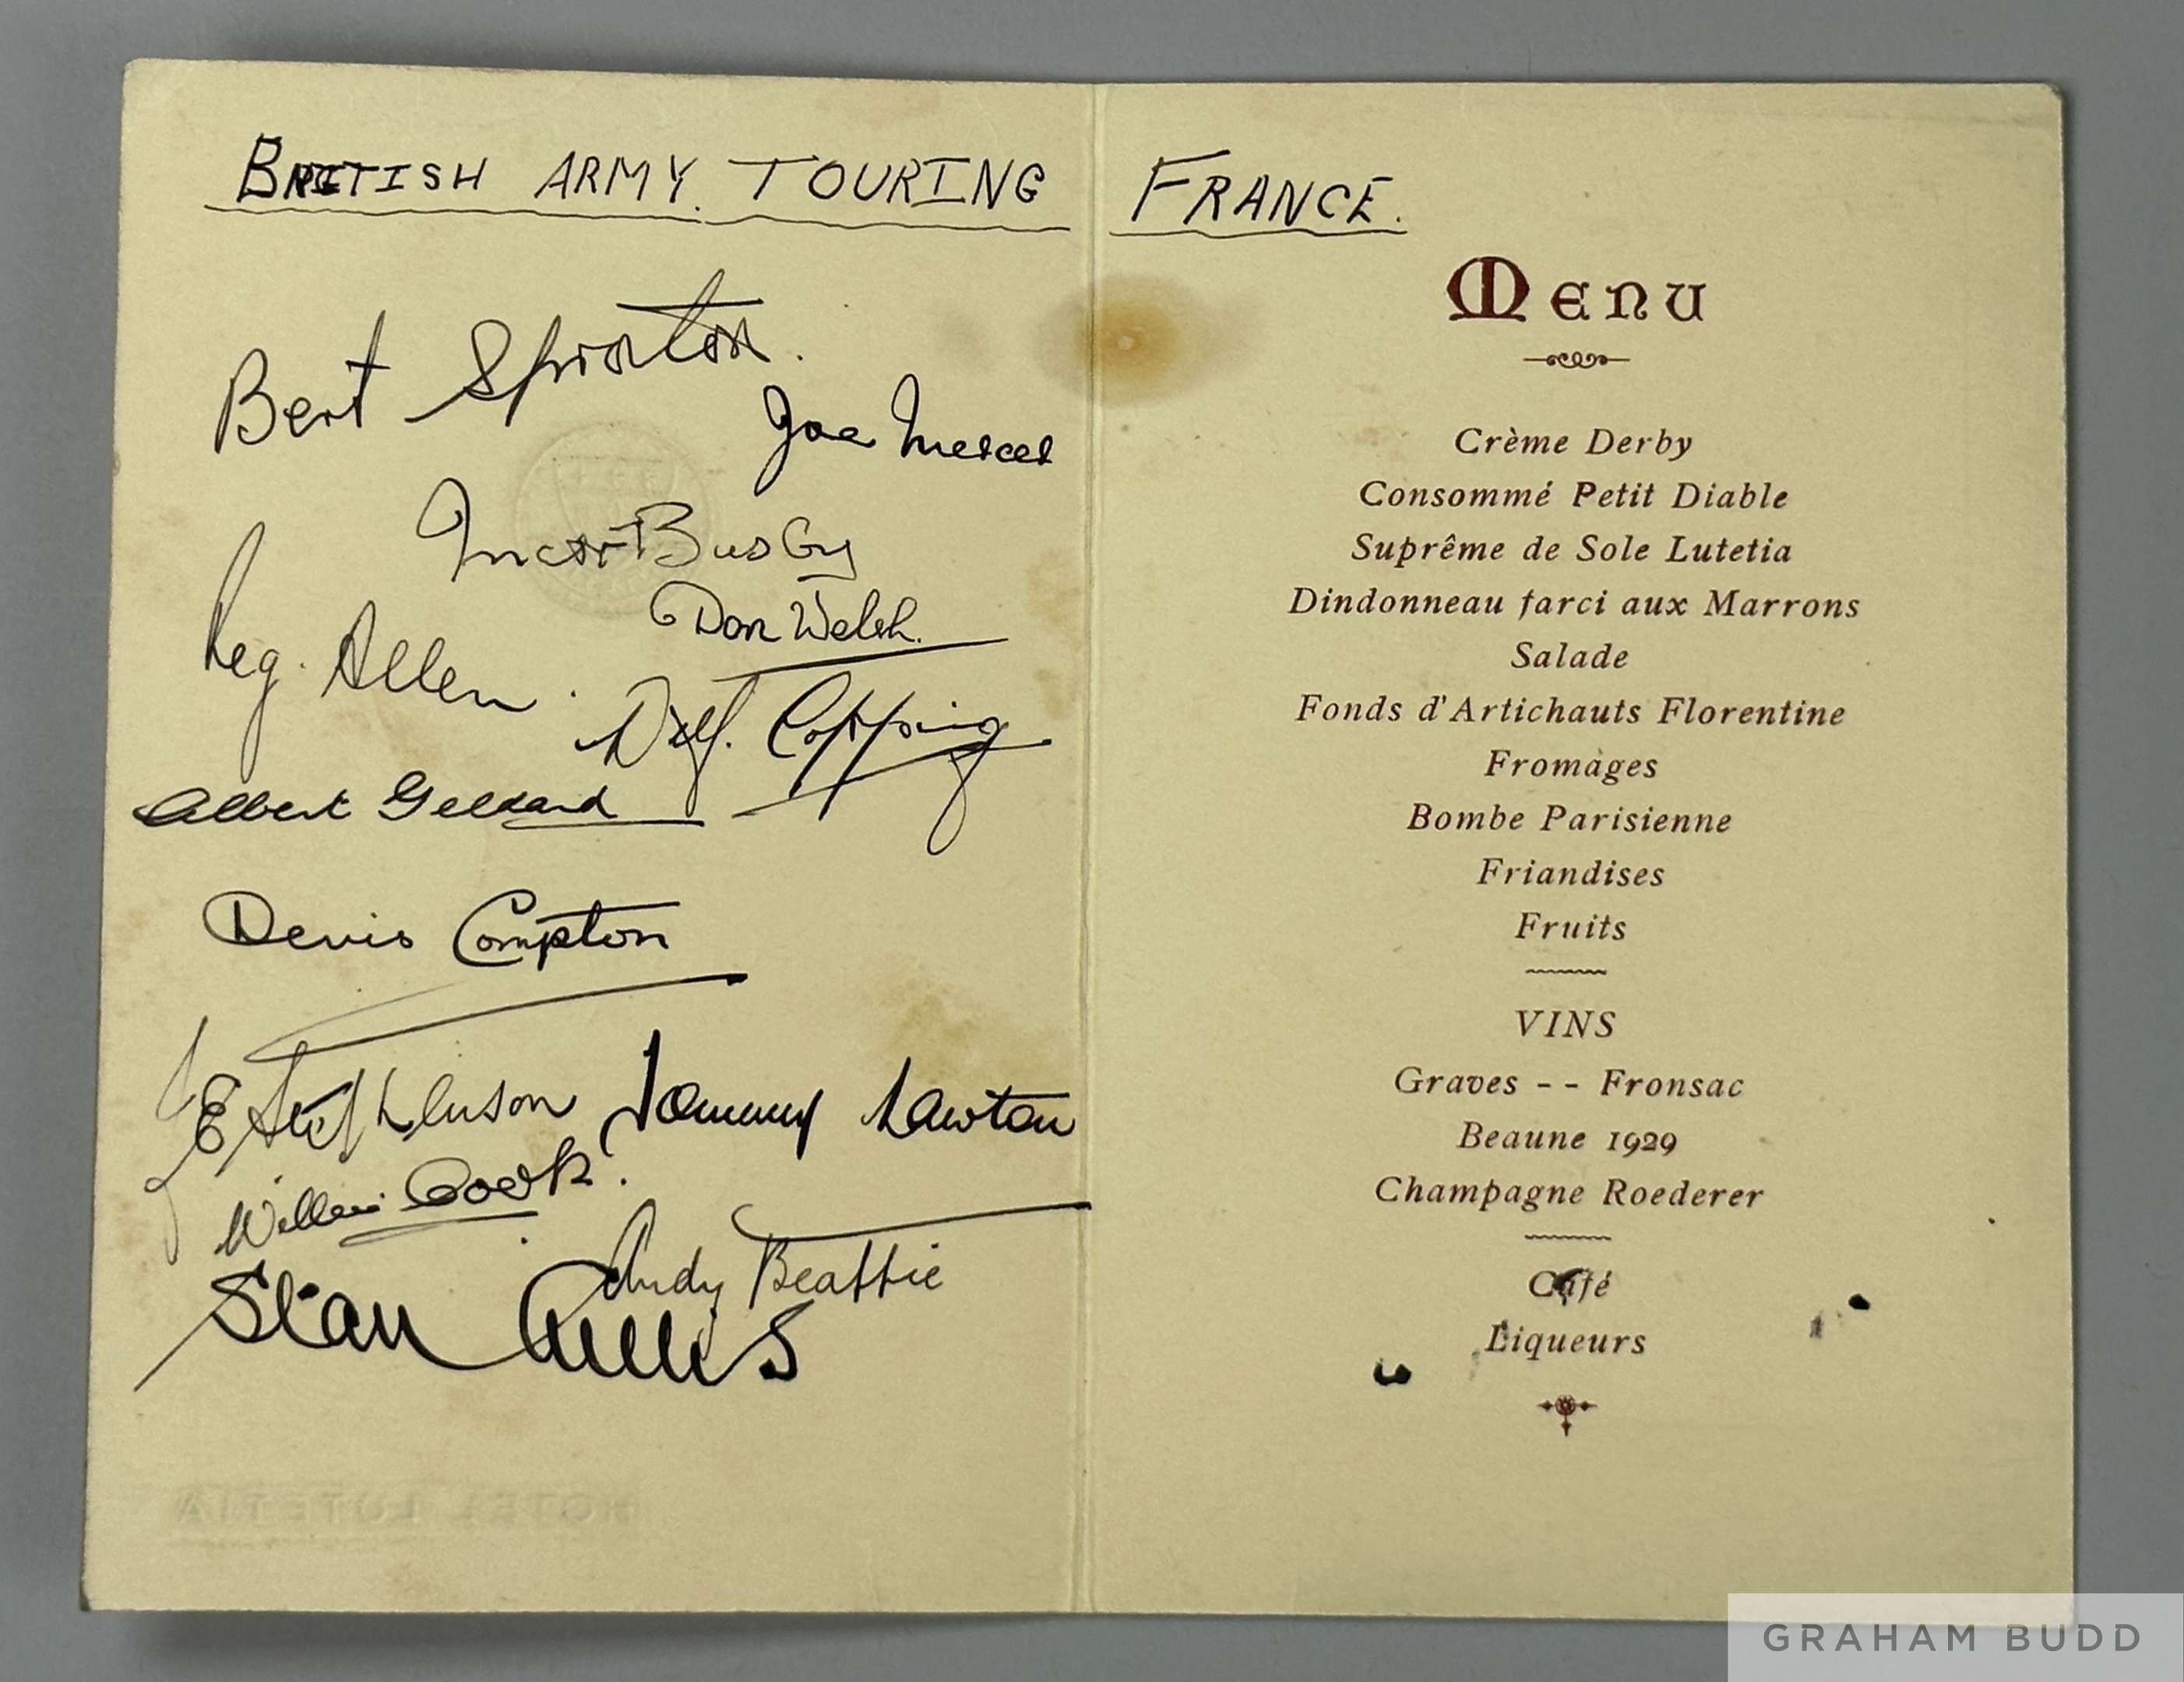 BRITISH ARMY. TOURING FRANCE.
Bert Sproston.
Joe Mercer
Matt Busby
Don Welsh.
Reg. Allen.
Wilf. Copping
Albert Geldard
Denis Compton
E Stephenson
Tommy Lawton
Willie Cook.
Andy Beattie
Stan Cullis
HOTEL LUTETIA
Menu
Crème Derby
Consommé Petit Diable
Suprême de Sole Lutetia
Dindonneau farci aux Marrons
Salade
Fonds d'Artichauts Florentine
Fromages
Bombe Parisienne
Friandises
Fruits
VINS
Graves -- Fronsac
Beaune 1929
Champagne Roederer
Café
Liqueurs
GRAHAM BUDD